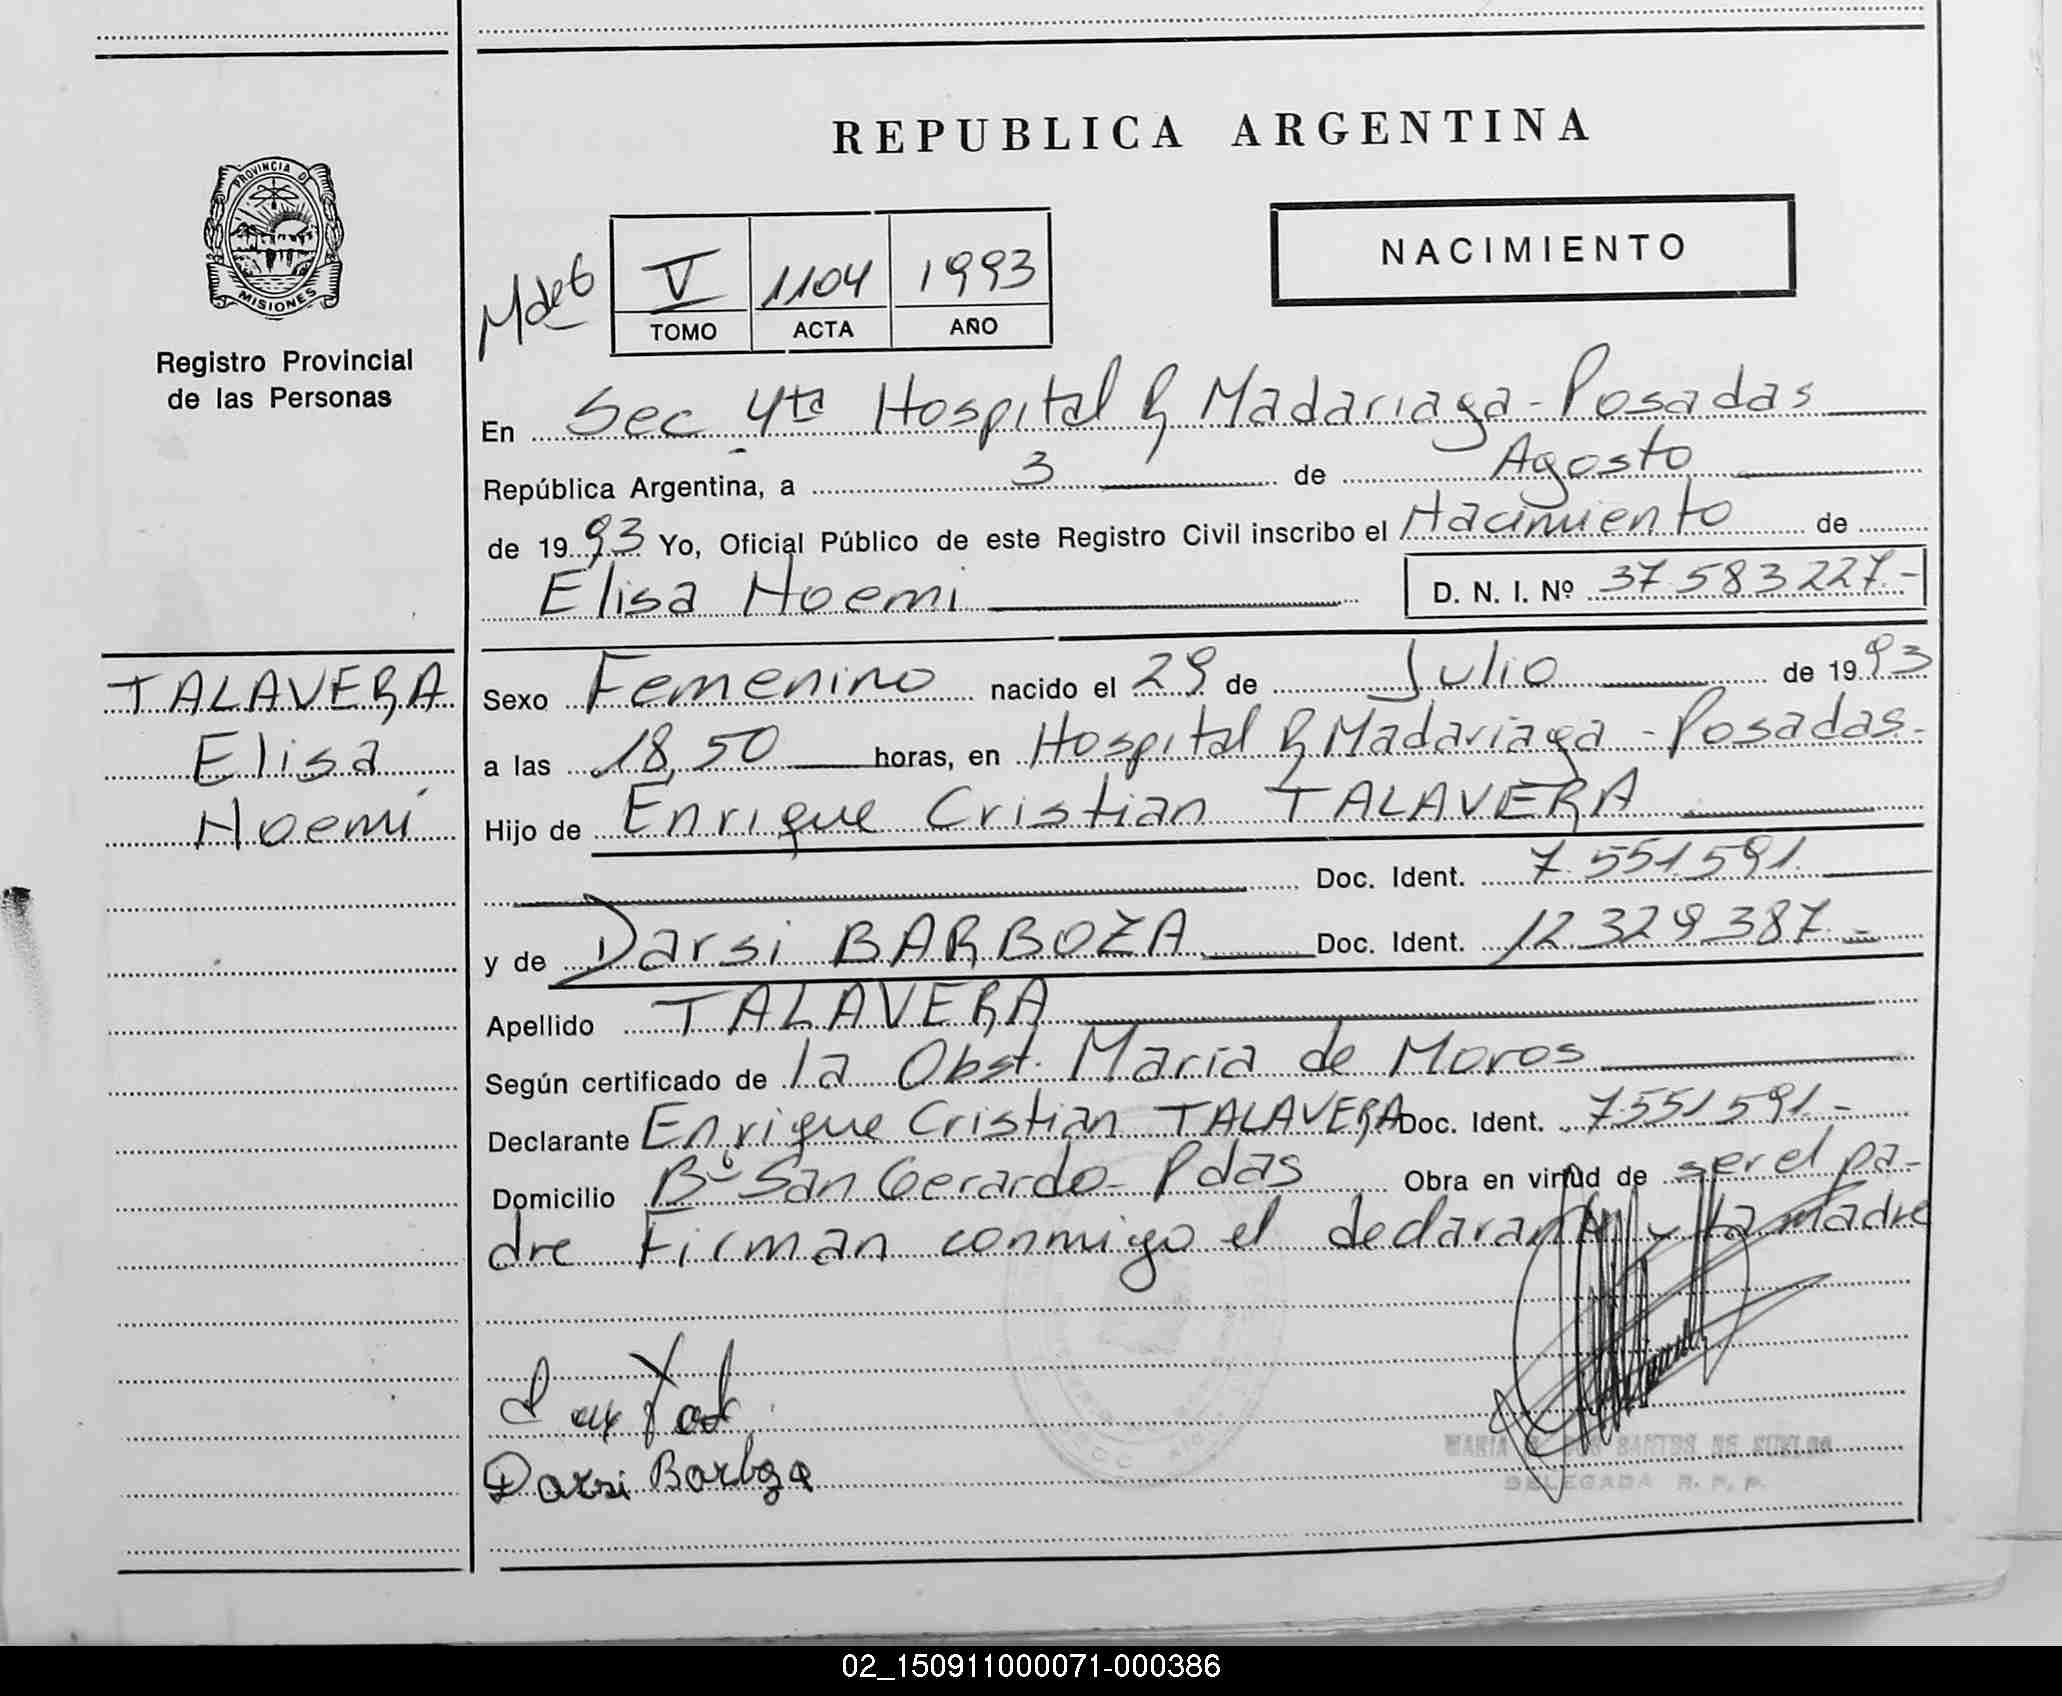 REPUBLICA ARGENTINA
PROVINCIA D
MISIONES
Registro Provincial
de las Personas
NACIMIENTO
V 1104 1993
TOMO ACTA AÑO
En Sec 4ta Hospital R Madariaga - Posadas
República Argentina, a 3 de Agosto
de 1993 Yo, Oficial Público de este Registro Civil inscribo el Nacimiento de
Elisa Noemi D. N. I. Nº 37.583.227.-
TALAVERA
Elisa
Noemí
Sexo Femenino nacido el 29 de Julio de 1993
a las 18,50 horas, en Hospital R Madariaga - Posadas.
Hijo de Enrique Cristian TALAVERA
Doc. Ident. 7.551.591.
y de Darsi BARBOZA Doc. Ident. 12.329.387.-
Apellido TALAVERA
Según certificado de la Obst. María de Moros
Declarante Enrique Cristian TALAVERA Doc. Ident. 7.551.591.-
Domicilio Bº San Gerardo - Pdas Obra en virtud de ser el pa-
dre Firman conmigo el declarante y la madre
Darsi Barboza
DELEGADA R. P. P.
02_150911000071-000386